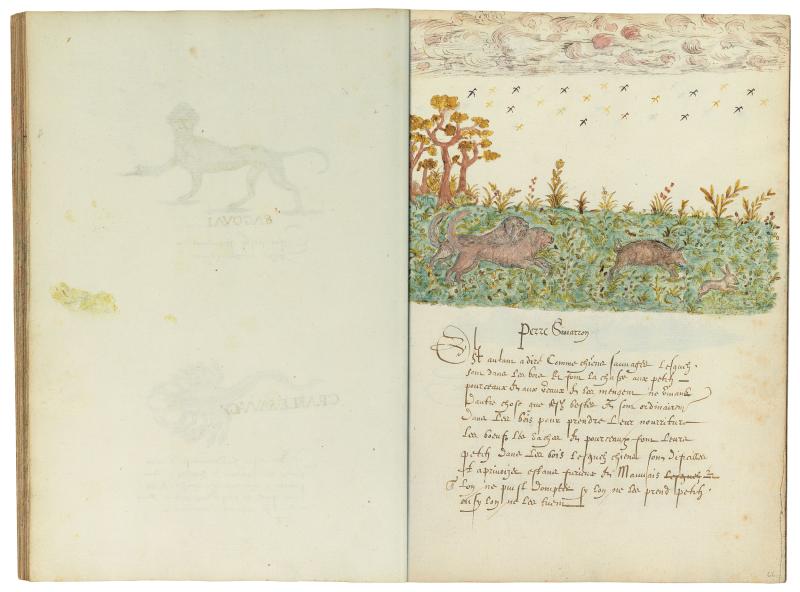 Perre Simarron
Est autant a dire Comme chiens sauvages Lesquelz
sont dans Les bois Et font La chasse aux petitz
pourceaux Et aux veaux Et Les mengent ne vivant
Dautre chose que bestes Et sont ordinairement
Dans Les bois pour prendre Leur nourriture
Les boeufs Les vaches Et pourceaux font Leurs
petitz dans Les bois Lesquelz chiens sont dificilles
Et aprivoizer estans furieux Et Mauvais Lesquelz
Lon ne puist dompter sy lon ne Les prend petitz
ou sy lon ne Les tuent